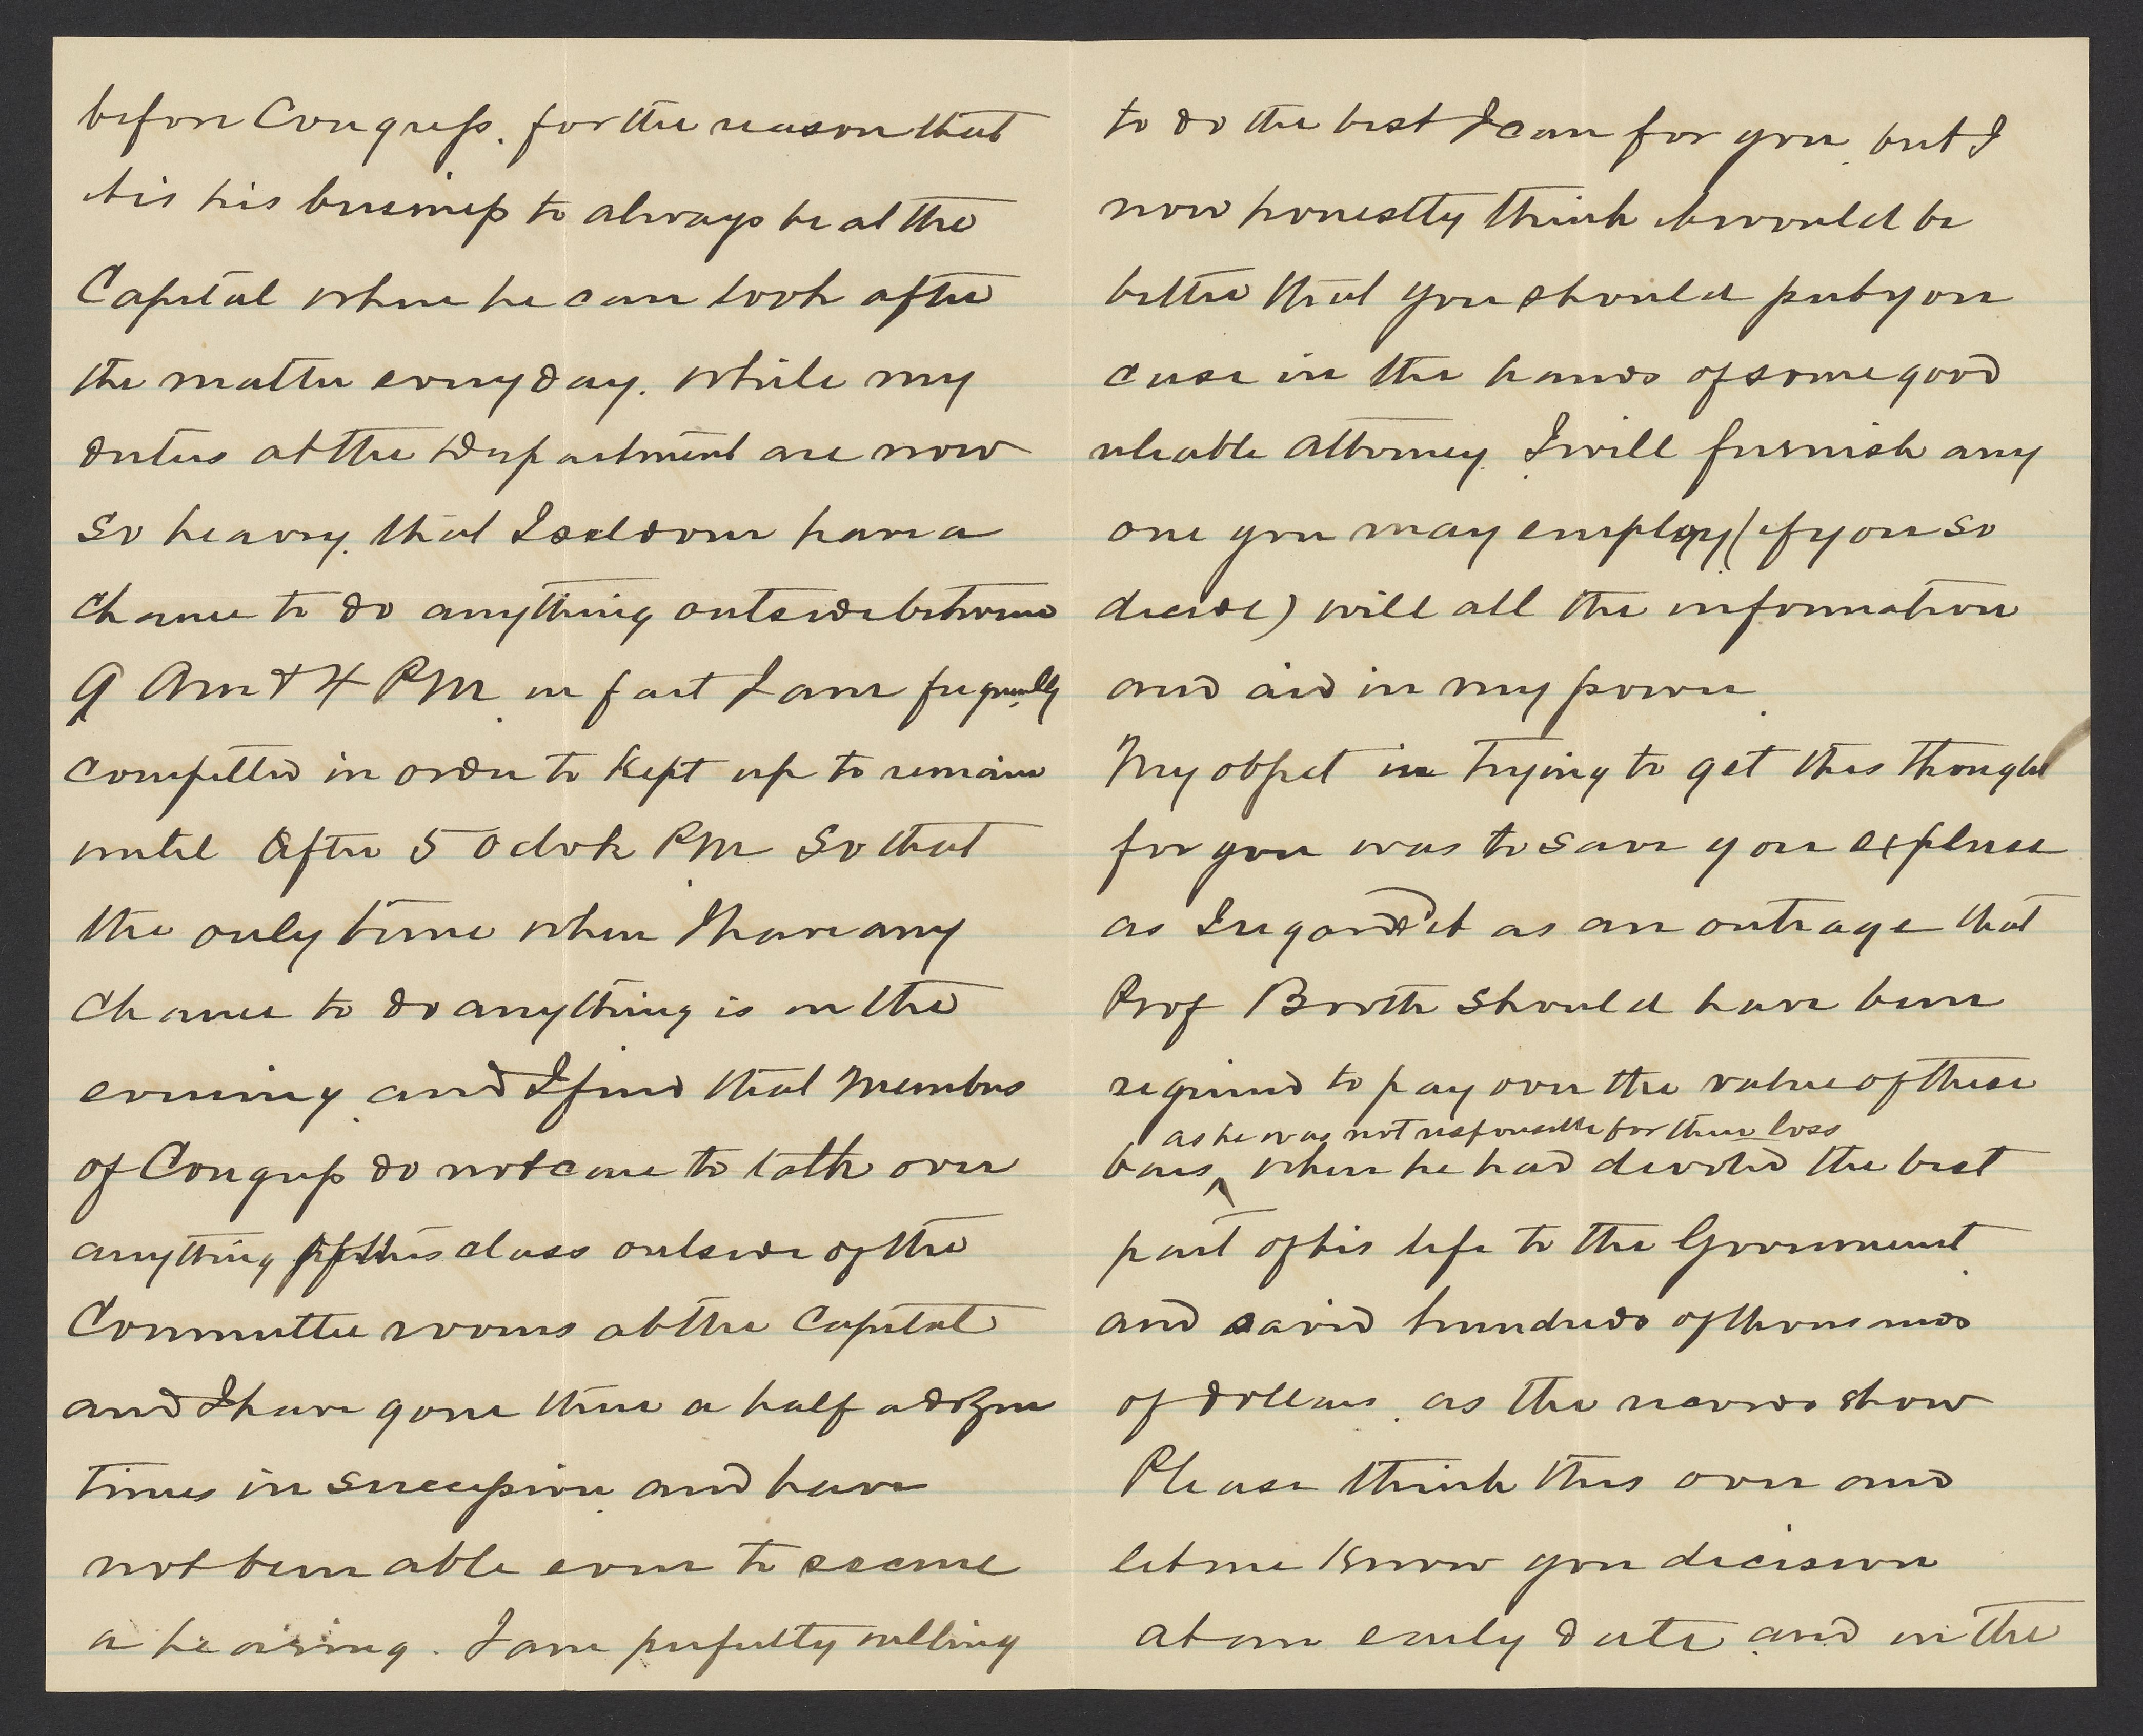 before Congress. for the reason that
it is his business to always be at the
Capital where he can look after
the matter every day. while my
duties at the Department are now
so heavy. that I seldom have a
chance to do anything outside between
9 Am & 4 PM. in fact I am frequently
compelled in order to kept up to remain
until after 5 Oclock PM. So that
the only time when I have any
chance to do anything is in the
evening and I find that Members
of Congress do not care to talk over
anything of this class outside of the
Committee rooms at the Capital
and I have gone there a half a dozen
times in succession and have
not been able even to secure
a hearing. I am perfectly willing
to do the best I can for you. but I
now honestly think it would be
better that you should put you
case in the hands of some good
reliable Attorney. I will furnish any
one you may employ (if you so
decide) will all the information
and aid in my power.
My object in trying to get this thought
for you was to save you expense
as I regard it as an outrage that
Prof Booth should have been
required to pay over the value of these
as he was not responsible for their loss
bars ^ when he had devoted the best
part of his life to the Government.
and saved hundreds of thousands
of dollars. as the records show
Please think this over and
let me know you decision
at an early date. and in the